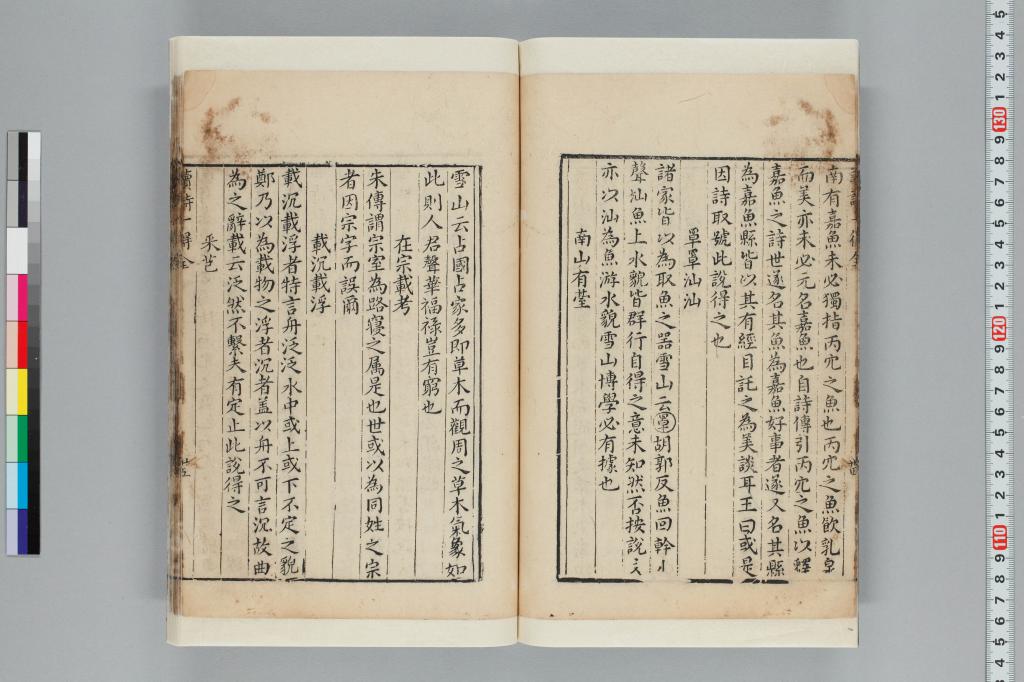 南有嘉魚未必獨指丙穴之魚也丙穴之魚飲乳泉
而美亦未必元名嘉魚也自詩傳引丙穴之魚以釋
嘉魚之詩世遂名其魚為嘉魚好事者遂又名其縣
為嘉魚縣皆以其有經目託之為美談耳王曰或是
因詩取號此說得之也
罩罩汕汕
諸家皆以為取魚之噐雪山云罩胡郭反魚回幹水
聲汕魚上水貌皆群行自得之意未知然否按說文
亦以汕為魚游水貌雪山博學必有據也
南山有薹
雪山云占國占家多即草木而觀周之草木氣象如
此則人君聲華福禄豈有窮也
在宗載考
朱傳謂宗室為路寢之属是也世或以為同姓之宗
者因宗字而誤爾
載沉載浮
載沉載浮者特言舟泛泛水中或上或下不定之貌
鄭乃以為載物之浮者沉者盖以舟不可言沉故曲
為之辭載云泛然不繫夫有定止此說得之
采芑
讀詩一得全
廿五